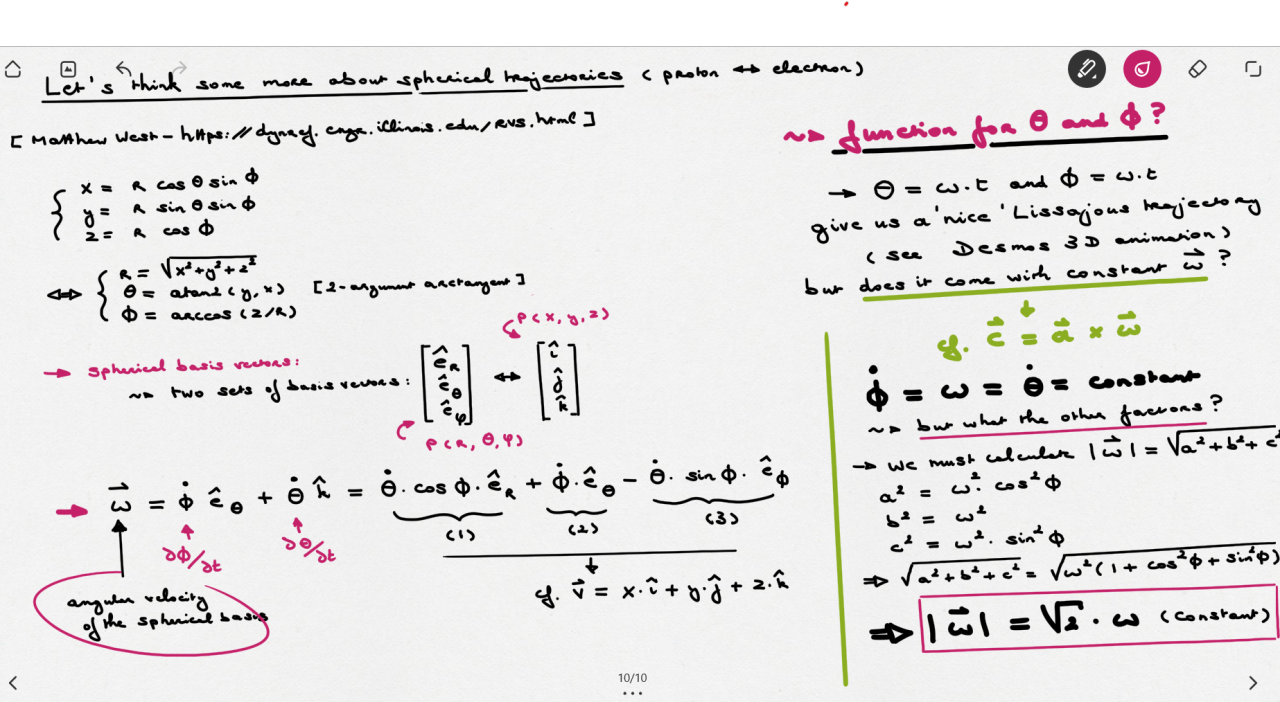 Let's think some more about spherical trajectories (proton ↔ electron)
[Matthew West – https://dynref.engr.illinois.edu/rvs.html]
x = R cos θ sin ϕ
y = R sin θ sin ϕ
z = R cos ϕ
⇔ R = √x²+y²+z²
θ = atan2(y,x) [2-argument arctangent]
ϕ = arccos(z/R)
P(x,y,z)
→ spherical basis vectors:
~> two sets of basis vectors: [ê_R ê_θ ê_φ] ↔ [î ĵ k̂]
P(R,θ,φ)
→ ω⃗ = ϕ̇ ê_θ + θ̇ k̂ = θ̇·cos ϕ·ê_R + ϕ̇·ê_θ − θ̇·sin ϕ·ê_ϕ
(1) (2) (3)
∂ϕ/∂t ∂θ/∂t
cf. v⃗ = x·î + y·ĵ + z·k̂
angular velocity
of the spherical basis
~> function for θ and ϕ?
→ θ = ω.t and ϕ = ω.t
give us a 'nice' Lissajous trajectory
(see Desmos 3D animation)
but does it come with constant ω⃗ ?
cf. c⃗ = a⃗ × ω⃗
ϕ̇ = ω = θ̇ = constant
~> but what the other factors?
→ we must calculate |ω⃗| = √a²+b²+c²
a² = ω²·cos²ϕ
b² = ω²
c² = ω²·sin²ϕ
⇒ √a²+b²+c² = √ω²(1 + cos²ϕ + sin²ϕ)
⇒ |ω⃗| = √2·ω (constant)
10/10